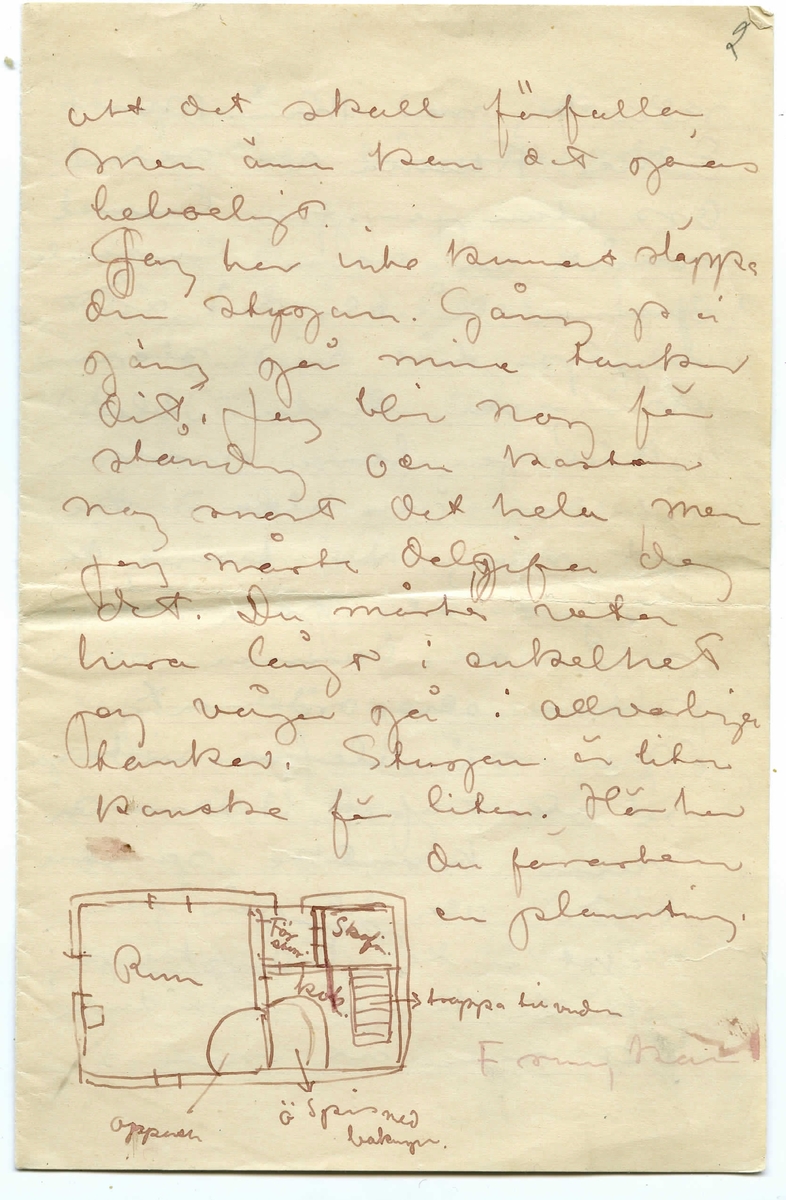 2
att det skall förfalla
men ännu kan det göras
beboeligt.
Jag har inte kunnat släppa
den stugan. Gång på
gång går mina tankar
dit. Jag blir nog för
ståndig och kastar
nog snart det hela men
jag måste delgifva dig
det. Du måste veta
huru långt i enkelhet
jag vågar gå i allvarliga
tankar. Stugan är liten
kanske för liten. Här har
du förresten
en planritning.
Rum
För
stuv.
Skaf.
kök.
trappa till vinden
öppen
Spis med
bakugn.